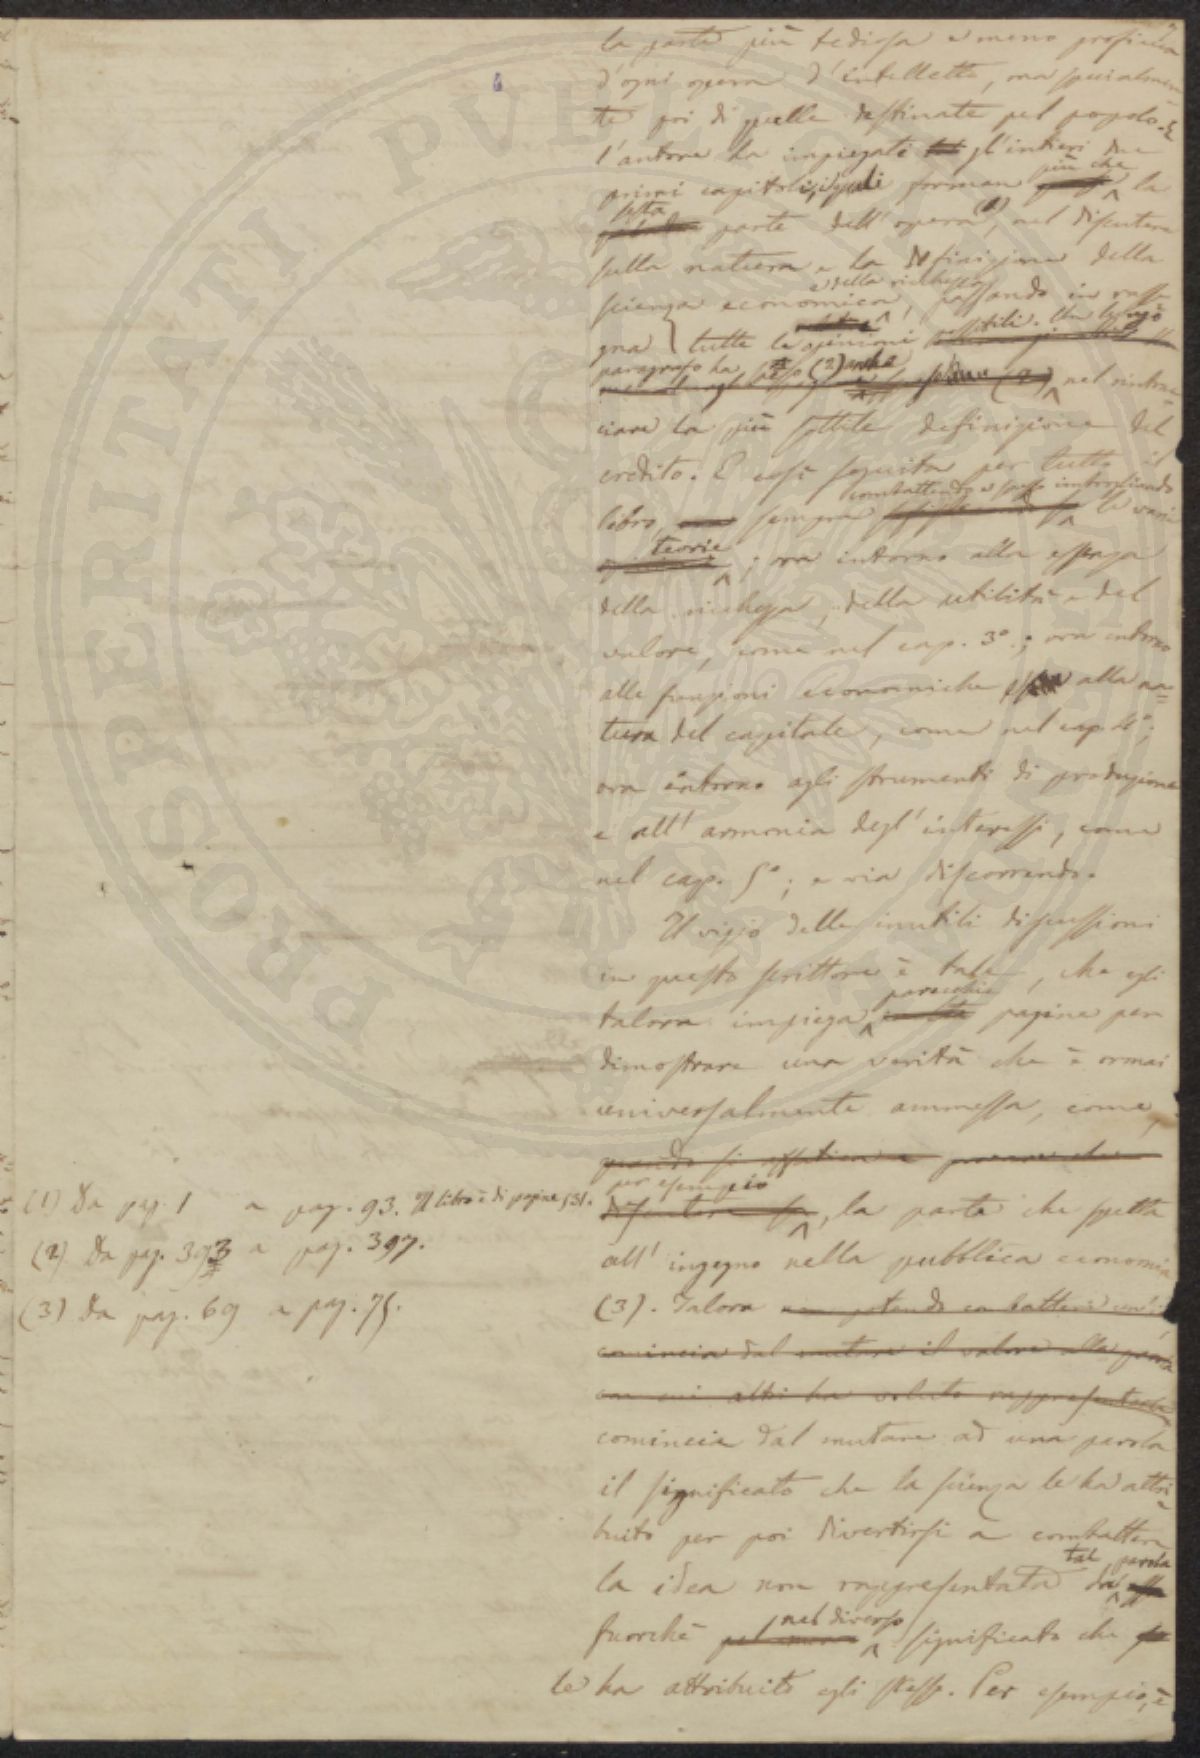 la parte più tediosa e meno proficua
d'ogni opera d'intelletto, ma specialmen
te poi di quelle destinate pel popolo. E
l'autore ha impiegati gl'intieri due
primi capitoli, i quali forman più che la
sesta parte dell'opera (1), nel discutere
sulla natura e la definizione della
scienza economica e della ricchezza, passando in rasse
gna tutte le opinioni possibili. Un lungo
paragrafo ha speso (2) anche nel rintrac
ciare la più sottile definizione del
credito. E così seguita per tutto il
libro, sempre combattendo e spesso imbrogliando le varie
teorie; ora intorno alla essenza
della ricchezza, della utilità e del
valore, come nel cap. 3º; ora intorno
alle funzioni economiche alla na=
tura del capitale, come nel cap. 4º;
ora intorno agli strumenti di produzione
e all'armonia degl'interessi, come
nel cap. 5º; e via discorrendo.
Il vizio delle inutili discussioni
in questo scrittore è tale, che egli
talora impiega parecchie pagine per
dimostrare una verità che è ormai
universalmente ammessa, come,
per esempio, la parte che spetta
all'ingegno nella pubblica economia
(3). Talora
comincia dal mutare ad una parola
il significato che la scienza le ha attri
buito per poi divertirsi a combattere
la idea non rappresentata da tal parola
fuorchè nel diverso significato che
le ha attribuito egli stesso. Per esempio, è
(1) Da pag. 1 a pag. 93. Il libro è di pagine 531.
(2) Da pag. 393 a pag. 397.
(3) Da pag. 69 a pag. 75.
PROSPERITATI PVBLICAE